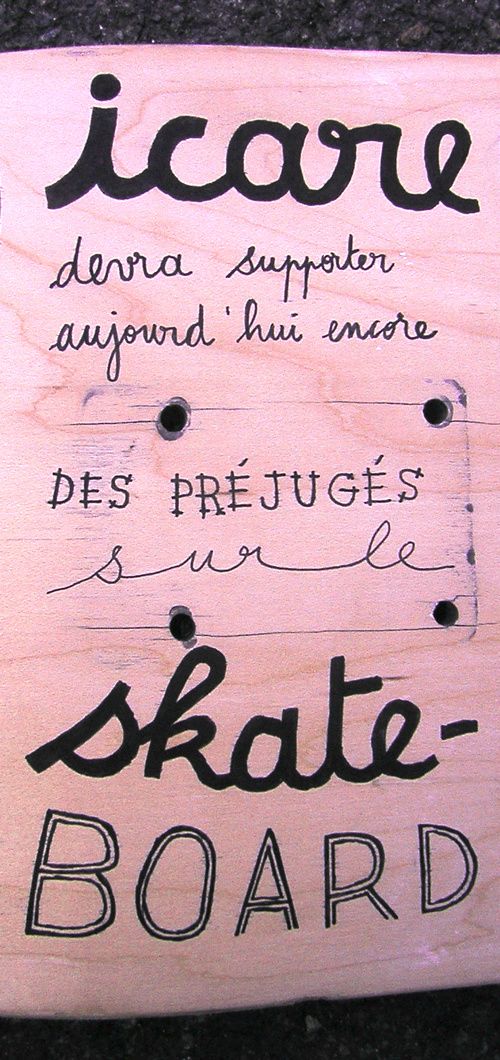 icare
devra supporter
aujourd'hui encore
DES PRÉJUGÉS
sur le
skate-
BOARD